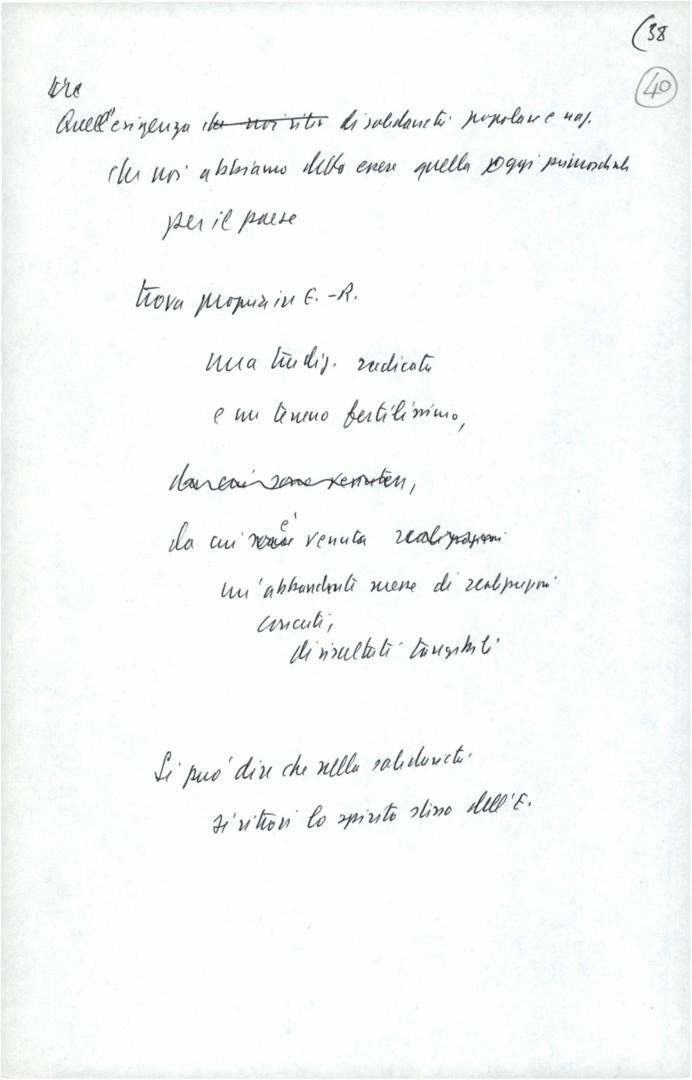 (38
40
Quell'esigenza che noi di solidarietà popolare e naz.
che noi abbiamo detto essere quella oggi primordiale
per il paese
trova proprio in E.-R.
una tradiz. radicata
e un terreno fertilissimo,
da cui sono venuten,
da cui è venuta realizzazioni
un'abbondante messe di realizzazioni
concrete,
di risultati tangibili
Si può dire che nella solidarietà
si ritrovi lo spirito stesso dell'E.